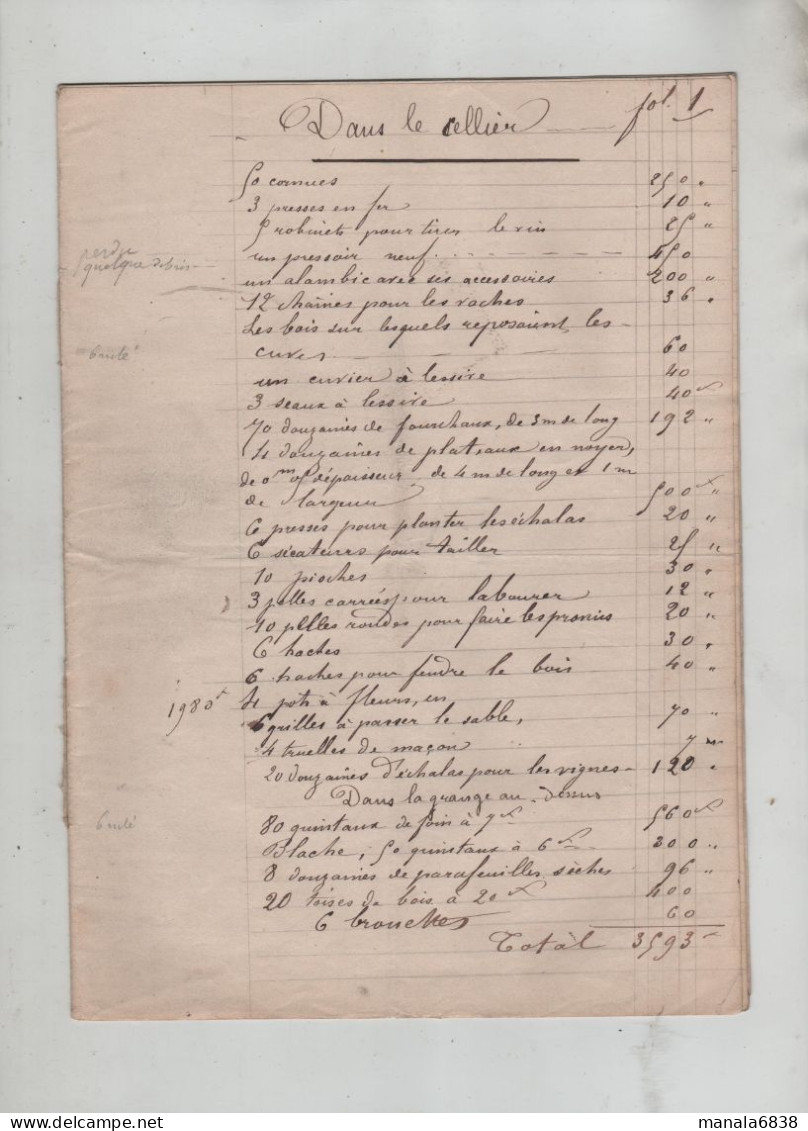 Dans le cellier fol. 1
50 cornues 250 "
3 presses en fer 10 "
5 robinets pour tirer le vin 25 "
un pressoir neuf 450
perdu
quelque débris
un alambic avec ses accessoires 200 "
12 chaînes pour les vaches 36 "
Les bois sur lesquels reposaient les
cuves 60
un cuvier à lessive 40
3 seaux à lessive 40 "
70 douzaines de de 3m de long 192 "
4 douzaines de plateaux en noyer,
de 0m 05 d'épaisseur, de 4 m de long et 1 m
de largeur 500 "
6 presses pour planter les échalas 20 "
6 sécateurs pour tailler 25 "
10 pioches 30 "
3 pelles carrées pour labourer 12 "
10 pelles rondes pour faire les provins 20 "
6 haches 30 "
6 haches pour fendre le bois 40 "
1980f
4 pots à fleurs, en
6 grilles à passer le sable, 70 "
4 truelles de maçon 7 "
20 douzaines d'échalas pour les vignes 120 "
Dans la grange au-dessus
80 quintaux de foin à 7f 560f
Blache, 50 quintaux à 6f 300 "
8 douzaines de parafeuilles sèches 96 "
20 toises de bois à 20f 400
6 brouettes 60
Total 3593
manala6838